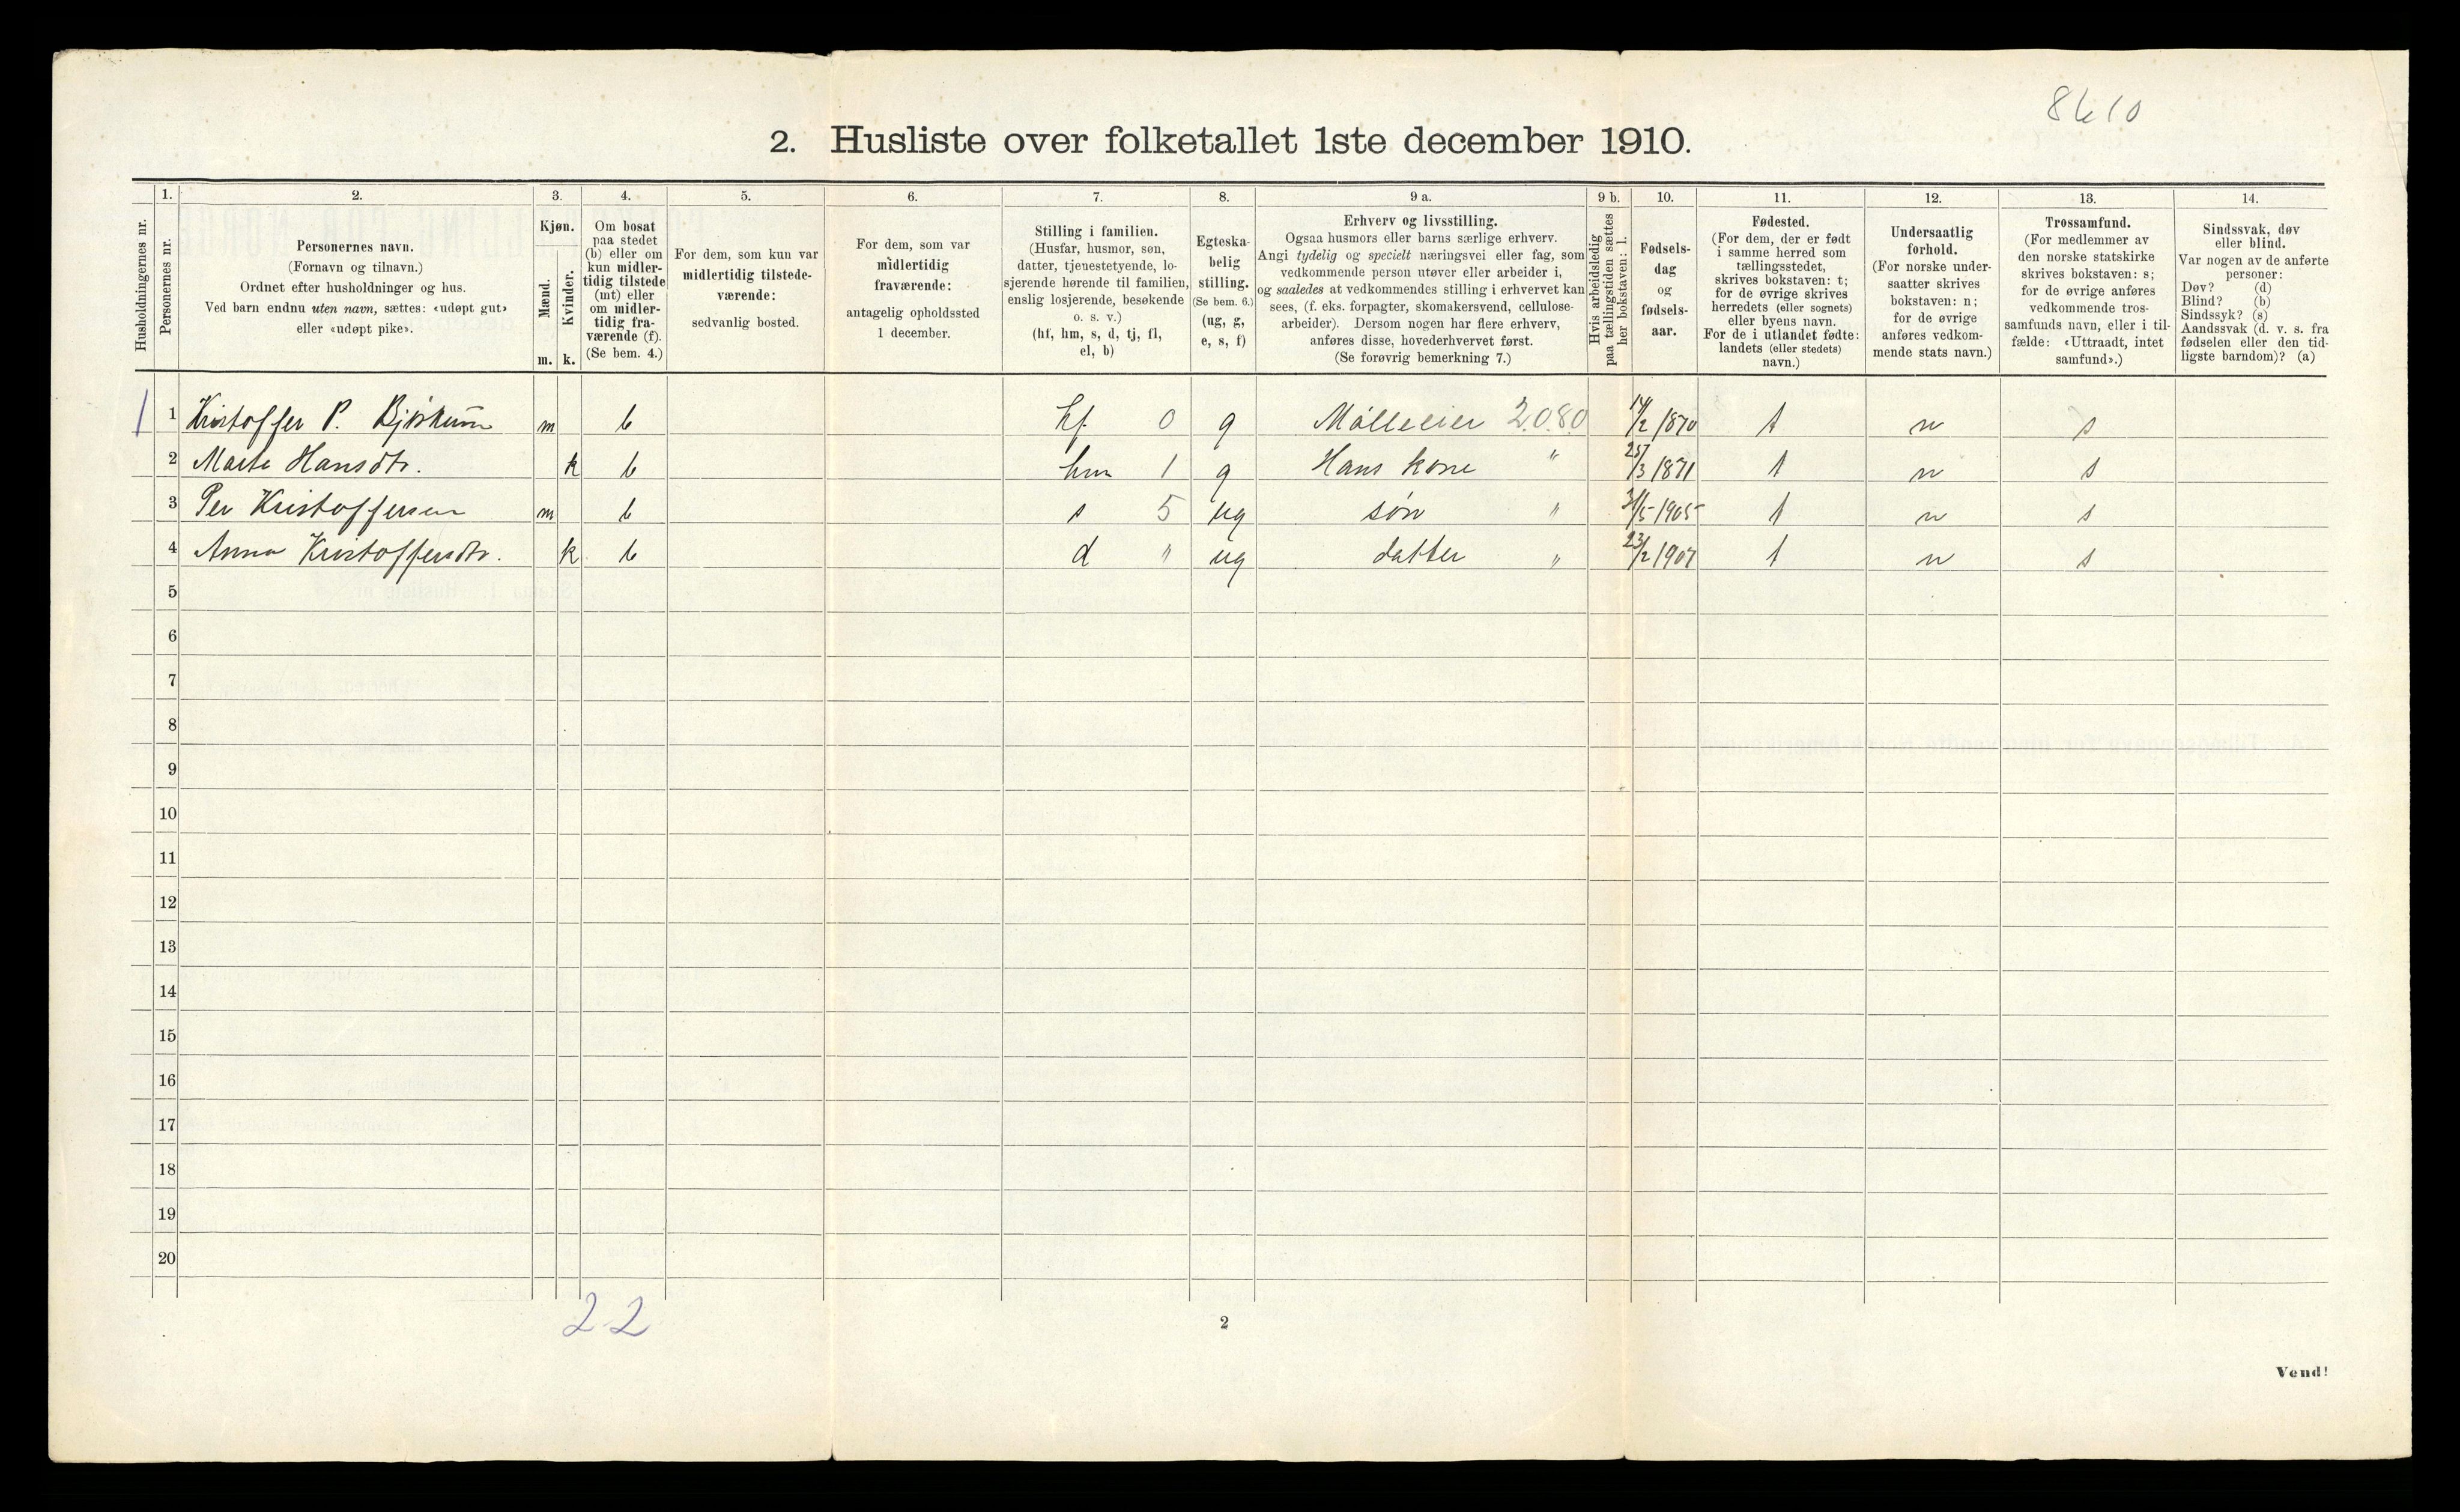 8610
2. Husliste over folketallet 1ste december 1910.
Husholdningernes nr.
1.
Personernes nr.
2.
Personernes navn.
(Fornavn og tilnavn.)
Ordnet efter husholdninger og hus.
Ved barn endnu uten navn, sættes: «udøpt gut»
eller «udøpt pike».
3.
Kjøn.
Mænd.
Kvinder.
m. k.
4.
Om bosat
paa stedet
(b) eller om
kun midler-
tidig tilstede
(mt) eller
om midler-
tidig fra-
værende (f).
(Se bem. 4.)
5.
For dem, som kun var
midlertidig tilstede-
værende:
sedvanlig bosted.
6.
For dem, som var
midlertidig
fraværende:
antagelig opholdssted
1 december.
7.
Stilling i familien.
(Husfar, husmor, søn,
datter, tjenestetyende, lo-
sjerende hørende til familien,
enslig losjerende, besøkende
o. s. v.)
(hf, hm, s, d, tj, fl,
el, b)
8.
Egteska-
belig
stilling.
(Se bem. 6.)
(ug, g,
e, s, f)
9 a.
Erhverv og livsstilling.
Ogsaa husmors eller barns særlige erhverv.
Angi tydelig og specielt næringsvei eller fag, som
vedkommende person utøver eller arbeider i,
og saaledes at vedkommendes stilling i erhvervet kan
sees, (f. eks. forpagter, skomakersvend, cellulose-
arbeider). Dersom nogen har flere erhverv,
anføres disse, hovederhvervet først.
(Se forøvrig bemerkning 7.)
9 b.
Hvis arbeidsledig
paa tællingstiden sættes
her bokstaven: l.
10.
Fødsels-
dag
og
fødsels-
aar.
11.
Fødested.
(For dem, der er født
i samme herred som
tællingsstedet,
skrives bokstaven: t;
for de øvrige skrives
herredets (eller sognets)
eller byens navn.
For de i utlandet fødte:
landets (eller stedets)
navn.)
12.
Undersaatlig
forhold.
(For norske under-
saatter skrives
bokstaven: n;
for de øvrige
anføres vedkom-
mende stats navn.)
13.
Trossamfund.
(For medlemmer av
den norske statskirke
skrives bokstaven: s;
for de øvrige anføres
vedkommende tros-
samfunds navn, eller i til-
fælde: «Uttraadt, intet
samfund».)
14.
Sindssvak, døv
eller blind.
Var nogen av de anførte
personer:
Døv? (d)
Blind? (b)
Sindssyk? (s)
Aandssvak (d. v. s. fra
fødselen eller den tid-
ligste barndom)? (a)
1 1 Kristoffer P. m b hf 0 g Mölleeier 2.0.80 14/2 1870 t n s
2 Marte Hansdtr. k b hm 1 g Hans kone " 25/3 1871 t n s
3 Per Kristoffersen m b s 5 ug søn " 31/5-1905 t n s
4 Anna Kristoffersdtr. k b d " ug datter " 23/2 1907 t n s
5
6
7
8
9
10
11
12
13
14
15
16
17
18
19
20
2 2
2
Vend!